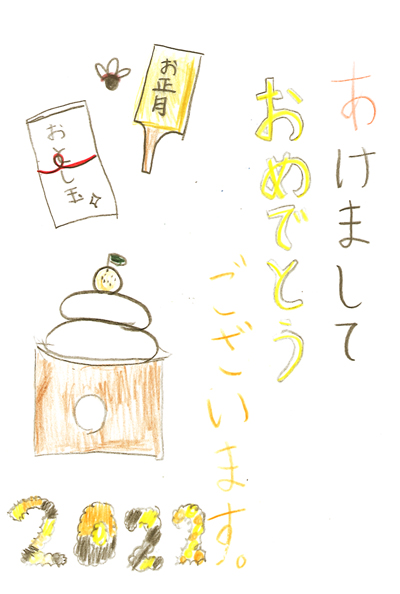 あけまして
おめでとう
ございます。
お正月
おとし玉
2022